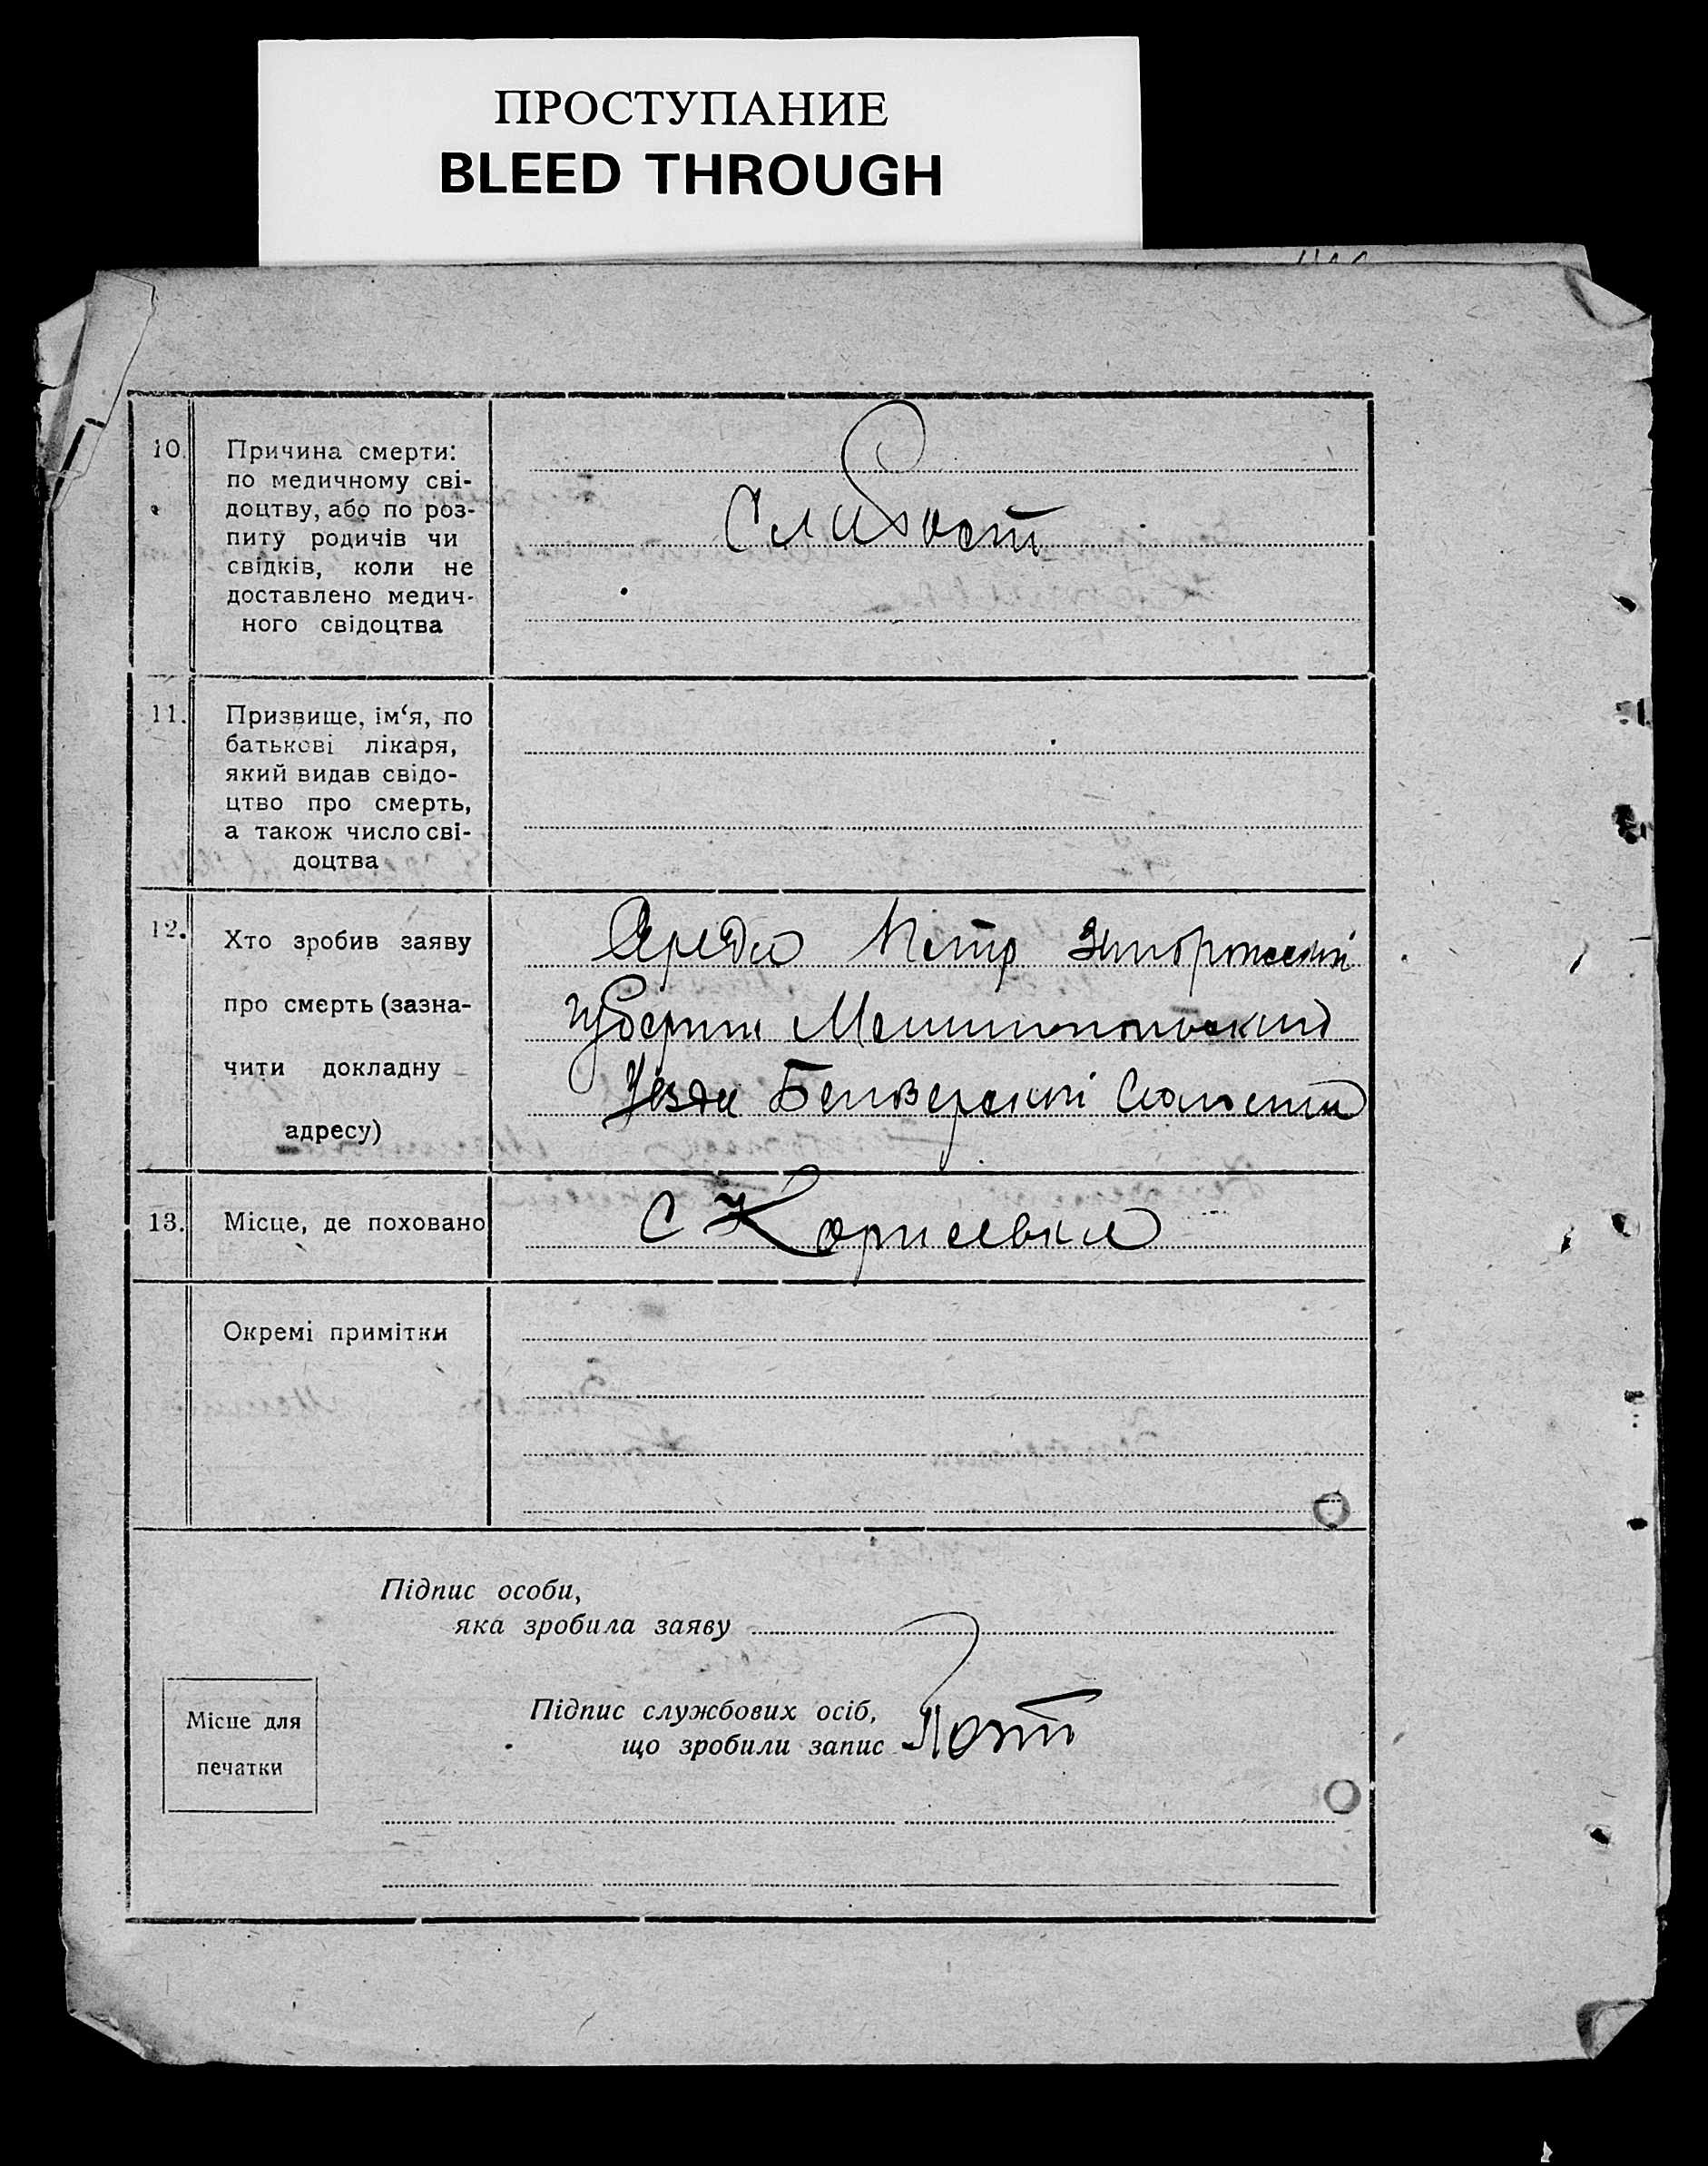 ПРОСТУПАНИЕ
BLEED THROUGH
10.
Причина смерти:
по медичному сві-
доцтву, або по роз-
питу родичів чи
свідків, коли не
доставлено медич-
ного свідоцтва
Слабост
11.
Призвище, ім‘я, по
батькові лікаря,
який видав свідо-
цтво про смерть,
а також число сві-
доцтва
12.
Хто зробив заяву
про смерть (зазна-
чити докладну
адресу)
Середа Петр Запорожской
Губернии Мелитопольский
Уезда Белозерской Волости
13.
Місце, де поховано
С Корнеевка
Окремі примітки
Підпис особи,
яка зробила заяву
Підпис службових осіб,
що зробили запис
Місце для
печатки